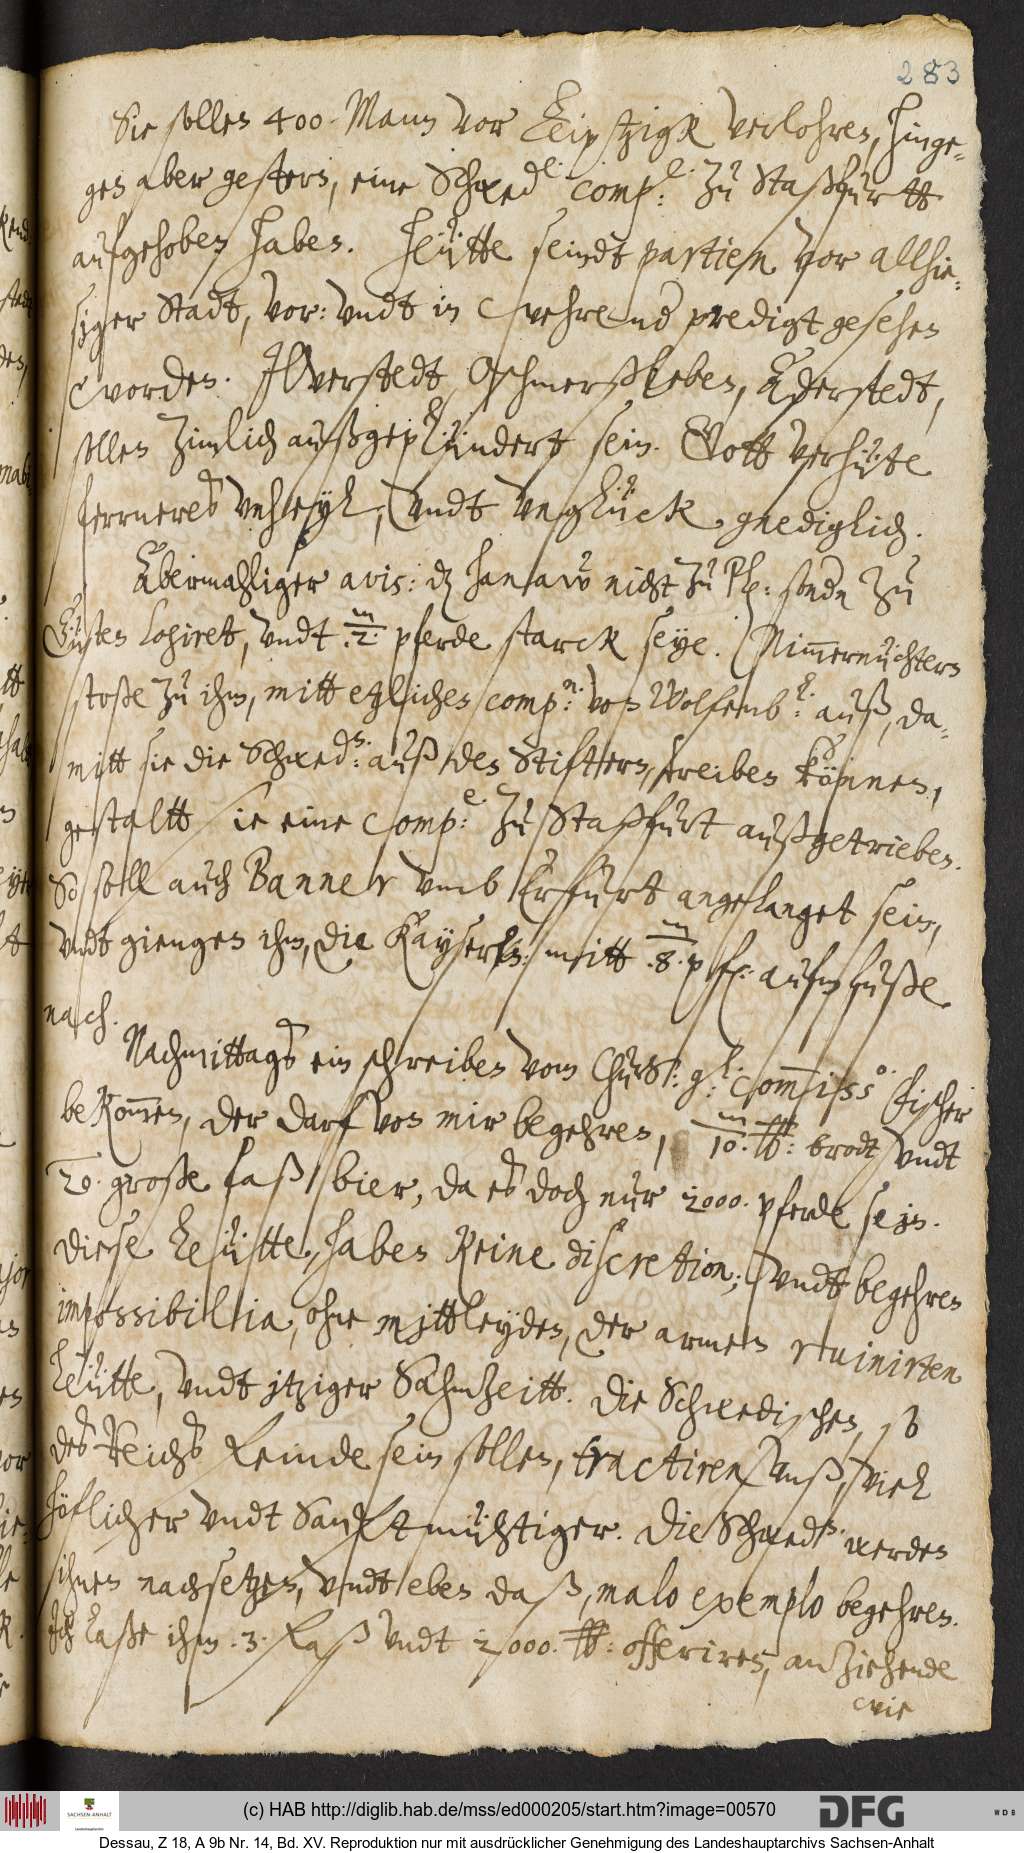 283
Sie sollen 400 Mann vor Leiptzigk verlohren, hinge-
gen aber gestern, eine Schwed.e comp.e: zu Staßfurtt
aufgehoben haben. Heütte seindt partien vor allhie-
siger Stadt, vor: vndt in wehrend predigt gesehen
worden. Ilverstedt, Oschmerßleben, Aderstedt,
sollen zimlich außgeplündert sein. Gott verhüte
fernneres vnheyl, vndt vnglück gnediglich.
Abermahliger avis: dz Hanaw nicht zu Pl: sondn zu
Güsten losiret, vndt .2. m pferde starck seye. Nim̅ernüchtern
stoße zu ihm, mitt etzlichen comp.n: von Wolfemb.l: auß, da-
mitt sie die Schwed.n: auß den Stiftern, treiben können,
gestaltt sie eine comp.e: zu Staßfurt außgetrieben.
So soll auch Banner vmb Erfurt angelanget sein,
vndt giengen ihm, die Kayserln: mitt .8. m pf: aufm fuße
nach.
Nachmittags ein schreiben vom Churs: g.l: com̅iss.o Fischer
bekom̅en, der darf von mir begehren, 10. m ℔: brodt, vndt
20. große faß bier, da es doch nur 2000. pferde sein.
Diese Leütte, haben keine discretion; vndt begehren
impossibilia, ohne mittleyden, der armen ruinirten
Leütte, vndt itziger Sahmzeitt. Die Schwedischen, so
des Reichs Feinde sein sollen, tractiren vnß, viel
höflicher vndt Sanftmühtiger. Die Schwed.n: werden
ihnen nachsetzen, vndt eben daß, malo exemplo begehren.
Ich laße ihm .3. Faß vndt 2000. ℔: offeriren, anziehende
wie
(c) HAB http://diglib.hab.de/mss/ed000205/start.htm?image=00570
SACHSEN-ANHALT
DFG
WDB
Dessau, Z 18, A 9b Nr. 14, Bd. XV. Reproduktion nur mit ausdrücklicher Genehmigung des Landeshauptarchivs Sachsen-Anhalt